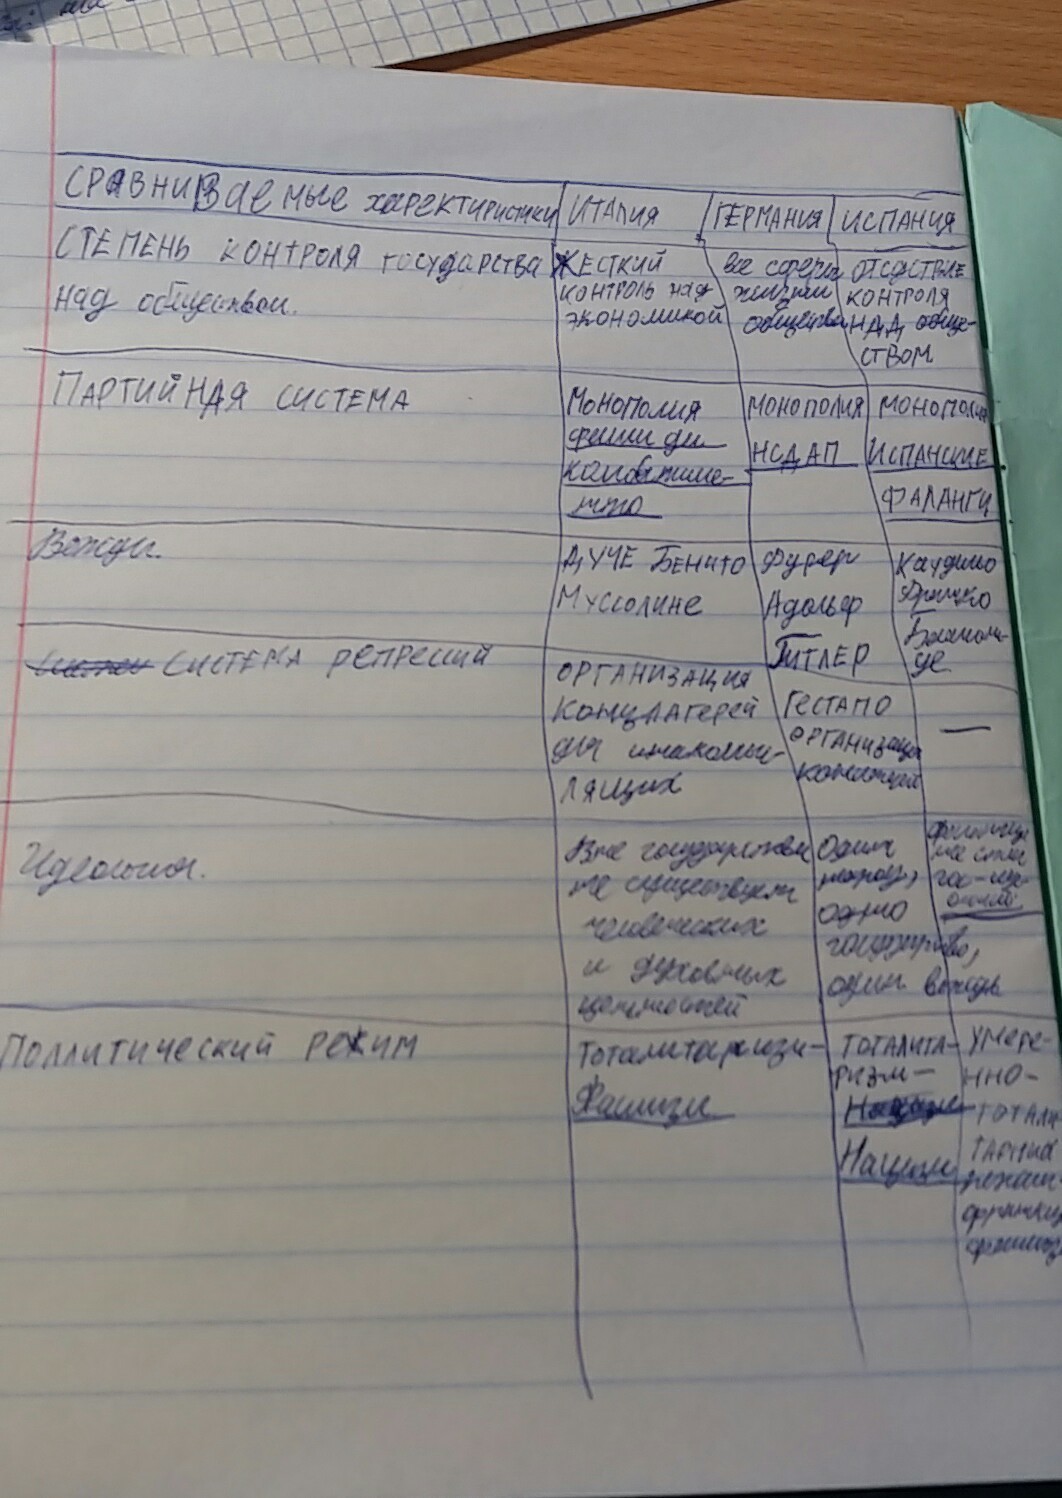 СРАВНИВаемые характиристики ИТАЛИЯ ГЕРМАНИЯ ИСПАНИЯ
СТЕПЕНЬ КОНТРОЛЯ государства
над обществом.
ЖЕСТКИЙ
КОНТРОЛЬ НАД
ЭКОНОМИКОЙ
все сферы
жизни
общества
ОТСУТСТВИЕ
КОНТРОЛЯ
НАД обще-
СТВОМ
ПАРТИЙНАЯ СИСТЕМА
МОНОПОЛИЯ
фаши ди
МОНОПОЛИЯ
НСДАП
МОНОПОЛИЯ
ИСПАНСКИЕ
ФАЛАНГИ
Вожди.
ДУЧЕ БЕНИТО
МУССОЛИНЕ
Фурер
Адольф
ГИТЛЕР
Каудильо
Франко
СИСТЕМА РЕПРЕССИЙ
ОРГАНИЗАЦИЯ
КОНЦЛАГЕРЕЙ
для инакомыс-
ЛЯЩИХ
ГЕСТАПО
ОРГАНИЗАЦИ
—
Идеология.
Вне государства
не существует
человеческих
и духовных
ценностей
Один
народ,
одно
государство,
один вождь
ПОЛЛИТИЧЕСКИЙ РЕЖИМ
Тоталитаризм-
Фашизм
ТОТАЛИТА-
РИЗМ-
Нацизм
УМЕРЕ-
ННО-
ТОТАЛИ-
ТАРНЫЙ
режим